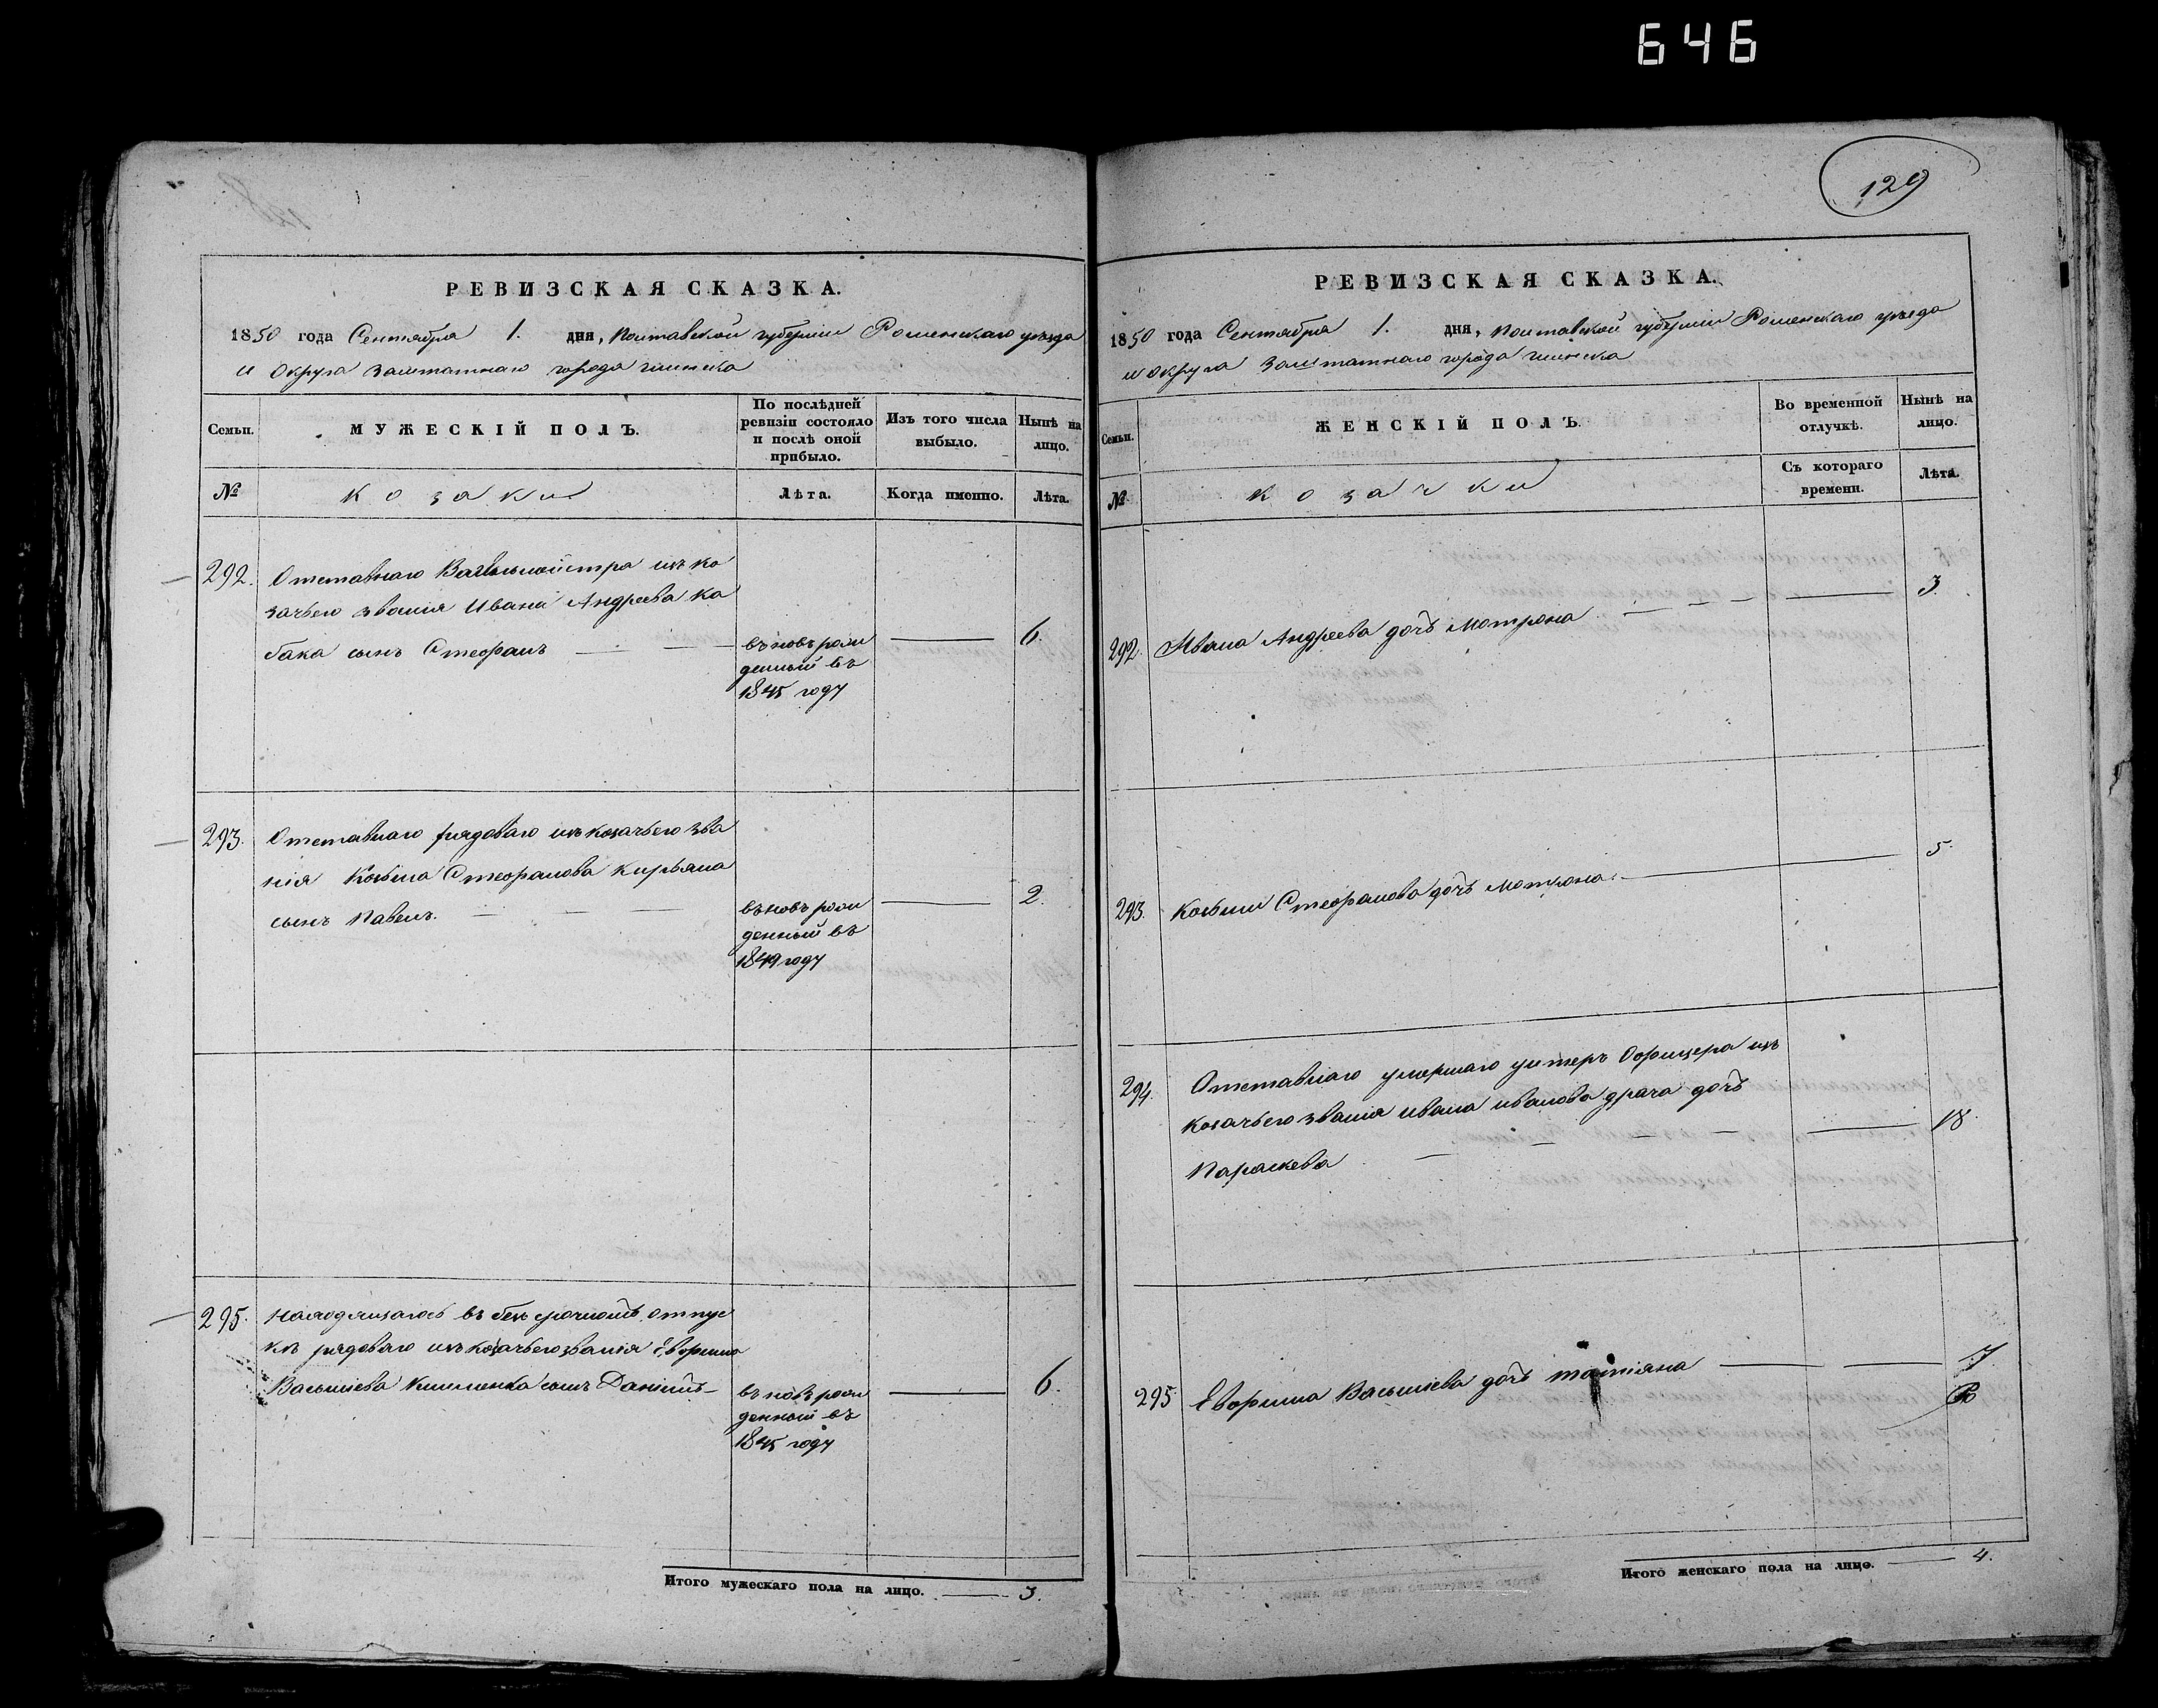 646
129
РЕВИЗСКАЯ СКАЗКА.
1850 года Сентября 1. дня, Полтавской губернии Роменскаго уезда
и Округа заштатнаго города Глинска
Семьи.
МУЖЕСКІЙ ПОЛЪ.
По послѣдней ревизіи состояло и послѣ оной прибыло.
Изъ того числа выбыло.
Нынѣ на лицо.
№
Козаки
Лѣта.
Когда именно.
Лѣта.
292. Отставнаго Вахмистра изъ ко
зачьего званія Ивана Андреева Ка
бака сынъ Стефанъ
въновь рож
денный въ
1845 году
6.
293. Отставнаго рядоваго изъ козачьего зва
нія Козьма Стефанова Кирьяна
сынъ Павелъ.
въновь рож
денный въ
1849 году
2.
295. Находящагось въ безсрочномъ отпус
къ рядоваго изъ козачьего званія Ефрима
Васильева Клименка сынъ Даніилъ
въ новь рож
денный въ
1845 году
6.
Итого мужескаго пола на лицо. 3.
РЕВИЗСКАЯ СКАЗКА.
1850 года Сентября 1. дня, Полтавской губерніи Роменскаго уезда
и округа заштатнаго города Глинска
Семьи.
ЖЕНСКІЙ ПОЛЪ.
Во временной отлучкѣ.
Нынѣ на лицо.
№
Козачки
Съ котораго времени.
Лѣта.
292. Ивана Андреева дочь Мотрона 3.
293. Козьмы Стефанова дочь Мотрона 5.
294. Отставнаго умершаго унтеръ Офицера изъ
козачьего званія Ивана Иванова Драча дочь
Параскева
18.
295 Ефрима Васильева дочь Татіяна 7
Итого женскаго пола на лицо. 4.